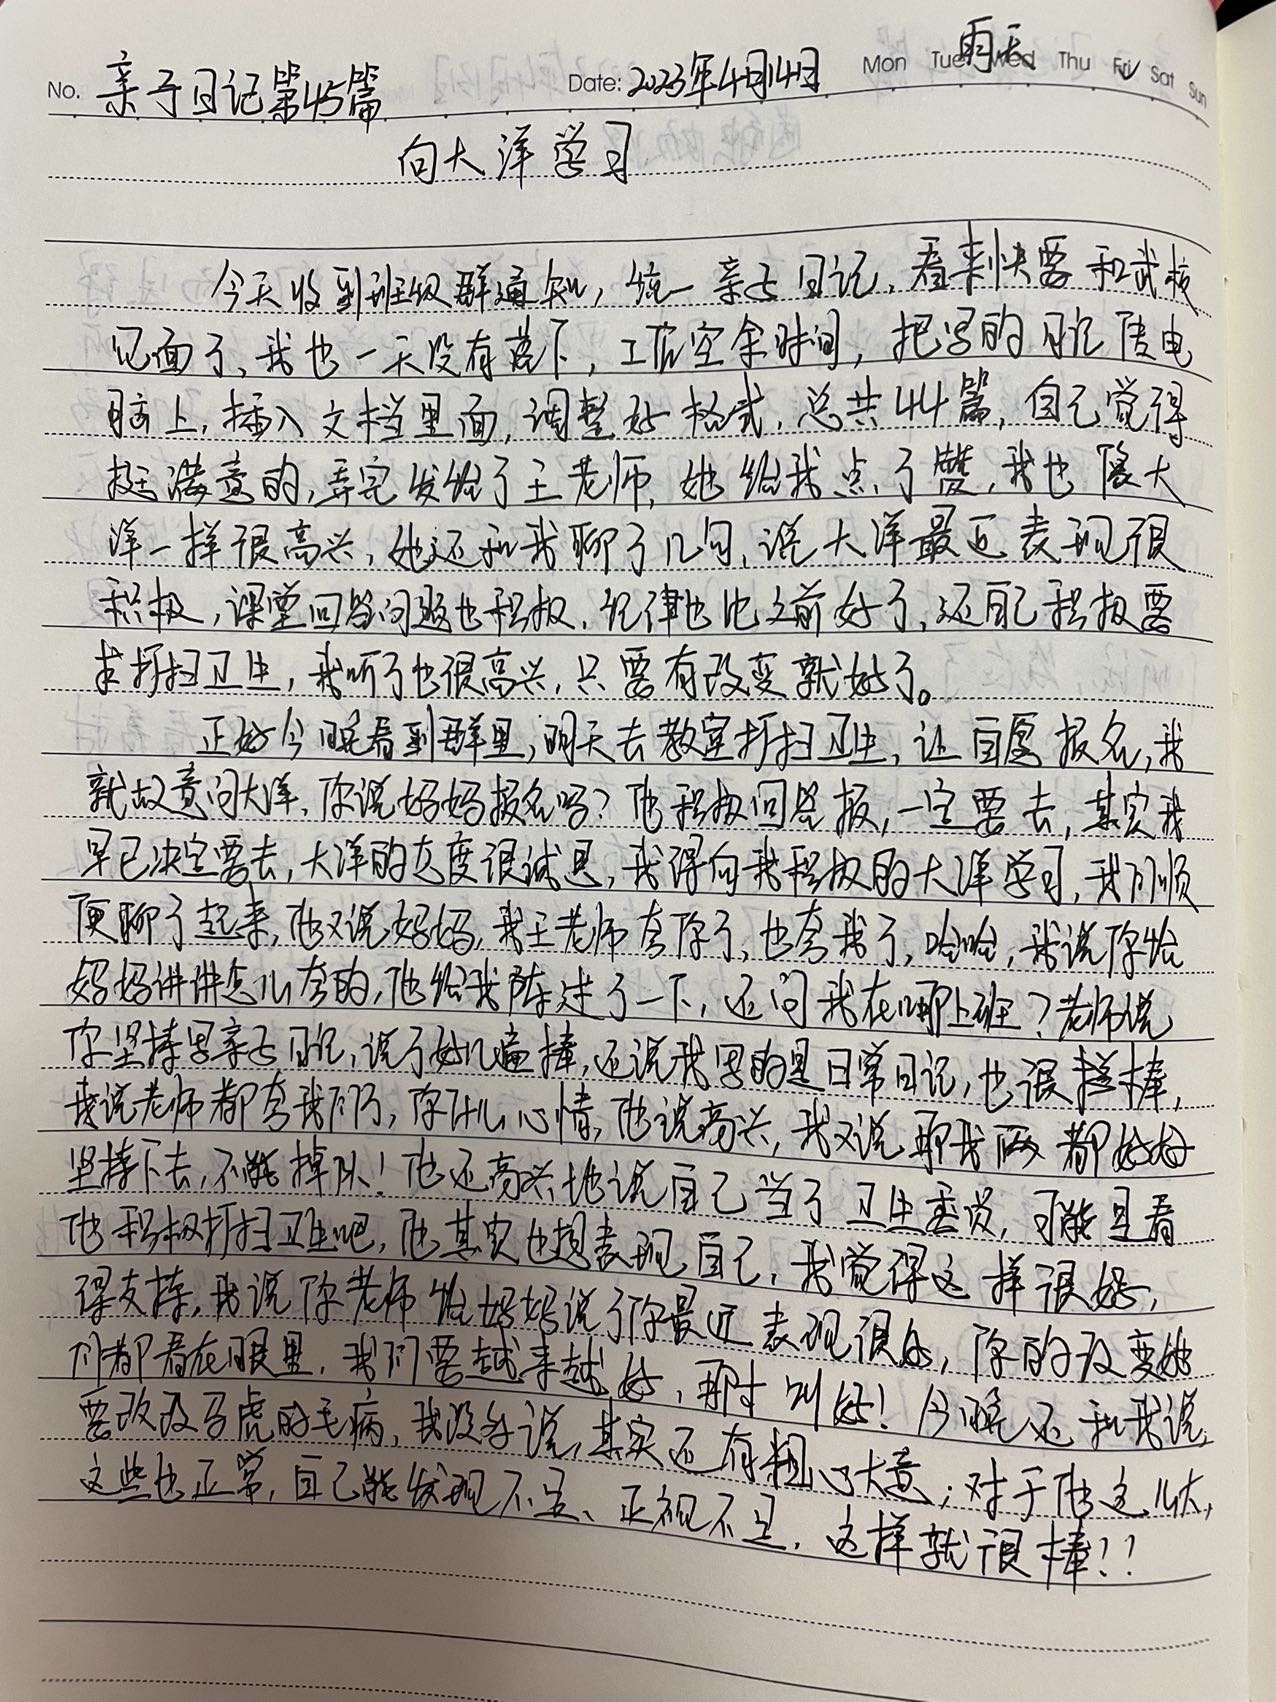 No. 亲子日记第45篇 Date: 2023年4月14日 Mon Tue Wed Thu Fri Sat Sun 雨天
向大洋学习
今天收到班级群通知，统一亲子日记，看来快要和武校
见面了，我也一天没有落下，工作空余时间，把写的日记传电
脑上，插入文档里面，调整好格式，总共44篇，自己觉得
挺满意的，弄完发给了王老师，她给我点了赞，我也像大
洋一样很高兴，她还和我聊了几句，说大洋最近表现很
积极，课堂回答问题也积极，纪律也比之前好了，还自己积极要
求打扫卫生，我听了也很高兴，只要有改变就好了。
正好今晚看到群里，明天去教室打扫卫生，让自愿报名，我
就故意问大洋，你说妈妈报名吗？他积极回答报，一定要去，其实我
早已决定要去，大洋的态度很诚恳，我得向我积极的大洋学习，我们顺
便聊了起来，他又说妈妈，我王老师夸你了，也夸我了，哈哈，我说你给
妈妈讲讲怎么夸的，他给我陈述了一下，还问我在哪上班？老师说
你坚持写亲子日记，说了好几遍棒，还说我写的是日常日记，也很棒，
我说老师都夸我们了，你什么心情，他说高兴，我又说那我俩都好好
坚持下去，不能掉队！他还高兴地说自己当了卫生委员，可能是看
他积极打扫卫生吧，他其实也想表现自己，我觉得这样很好，
得支持，我说你老师给妈妈说了你最近表现很好，你的改变她
们都看在眼里，我们要越来越好，那才叫好！今晚还和我说，
要改改马虎的毛病，我没多说，其实还有粗心大意；对于他这么大，
这些也正常，自己能发现不足、正视不足，这样就很棒！！